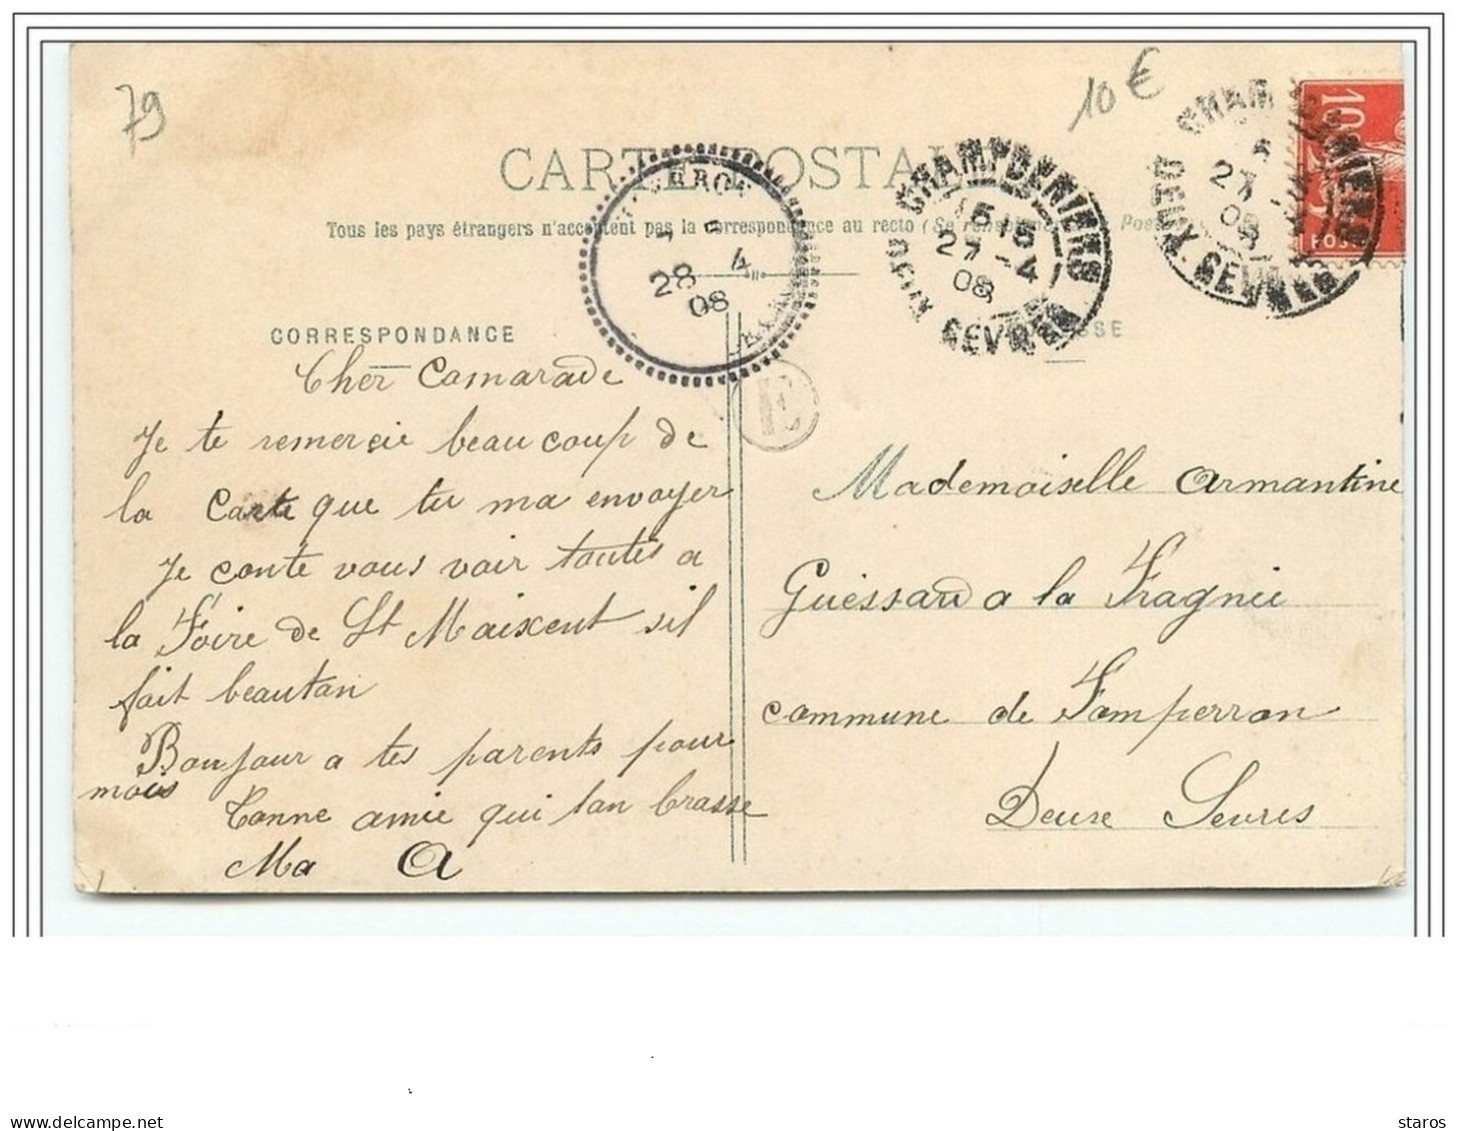 79
10 €
CARTE POSTALE
Tous les pays étrangers n'acceptent pas la correspondance au recto (Se renseigner
CHAMPDENIERS
15
27 - 4
08
DEUX SEVRES
CHAMPDENIERS
27
08
DEUX SEVRES
10
28 4
08
CORRESPONDANCE
E
Cher Camarade
Je te remercie beaucoup de
la Carte que tu ma envoyer
Je conte vous voir toutes a
la Foire de St Maixent sil
fait beautan
Bonjour a tes parents pour
mois
Tonne amie qui tan brasse
Ma A
Mademoiselle Armantine
Guessard a la Fragnée
commune de Fomperron
Deux Sevres
staros